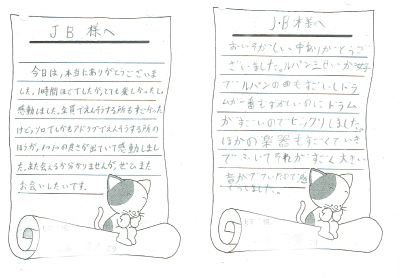 JB 様へ
今日は、本当にありがとうございま
した。1時間ほどでしたが、とても楽しかったし、
感動しました。全員でえんそうする所もすごかった
けど、ソロでしかもアドリブでえんそうする所の
ほうが、1人1人の良さが出ていて感動しまし
た。また会えるか分かりませんが、ぜひまた
お会いしたいです。
J・B 様へ
おいそがしい中ありがとうご
ざいました。ルパン三せい
でルパンの曲もすごいしトラ
ムが一番もずかしいのにトラム
がすごいのでビックリしました。
ほかの楽器もすごくていき
でふいてそれがすごく大きい
音が
しました。